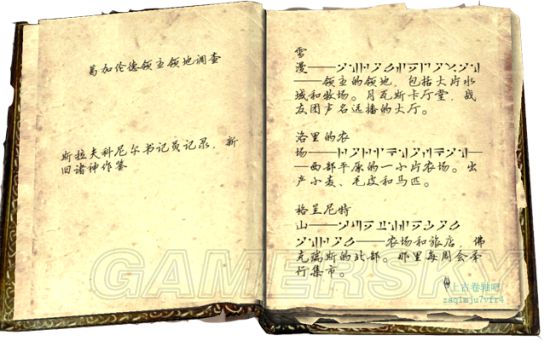 葛加伦德领主领地调查
斯拉夫科尼尔书记员记录，新
旧诸神作鉴
雪
漫——
——领主的领地，包括大片水
域和牧场。月瓦斯卡厅堂，战
友团声名远播的大厅。
洛里的农
场——
——西部平原的一小片农场。出
产小麦、毛皮和马匹。
格里尼特
山——
——农场和旅店，佛
克瑞斯的北部。那里每周会举
行集市。
GAMERSKY
上古卷轴吧
zaq1mju7vfr4